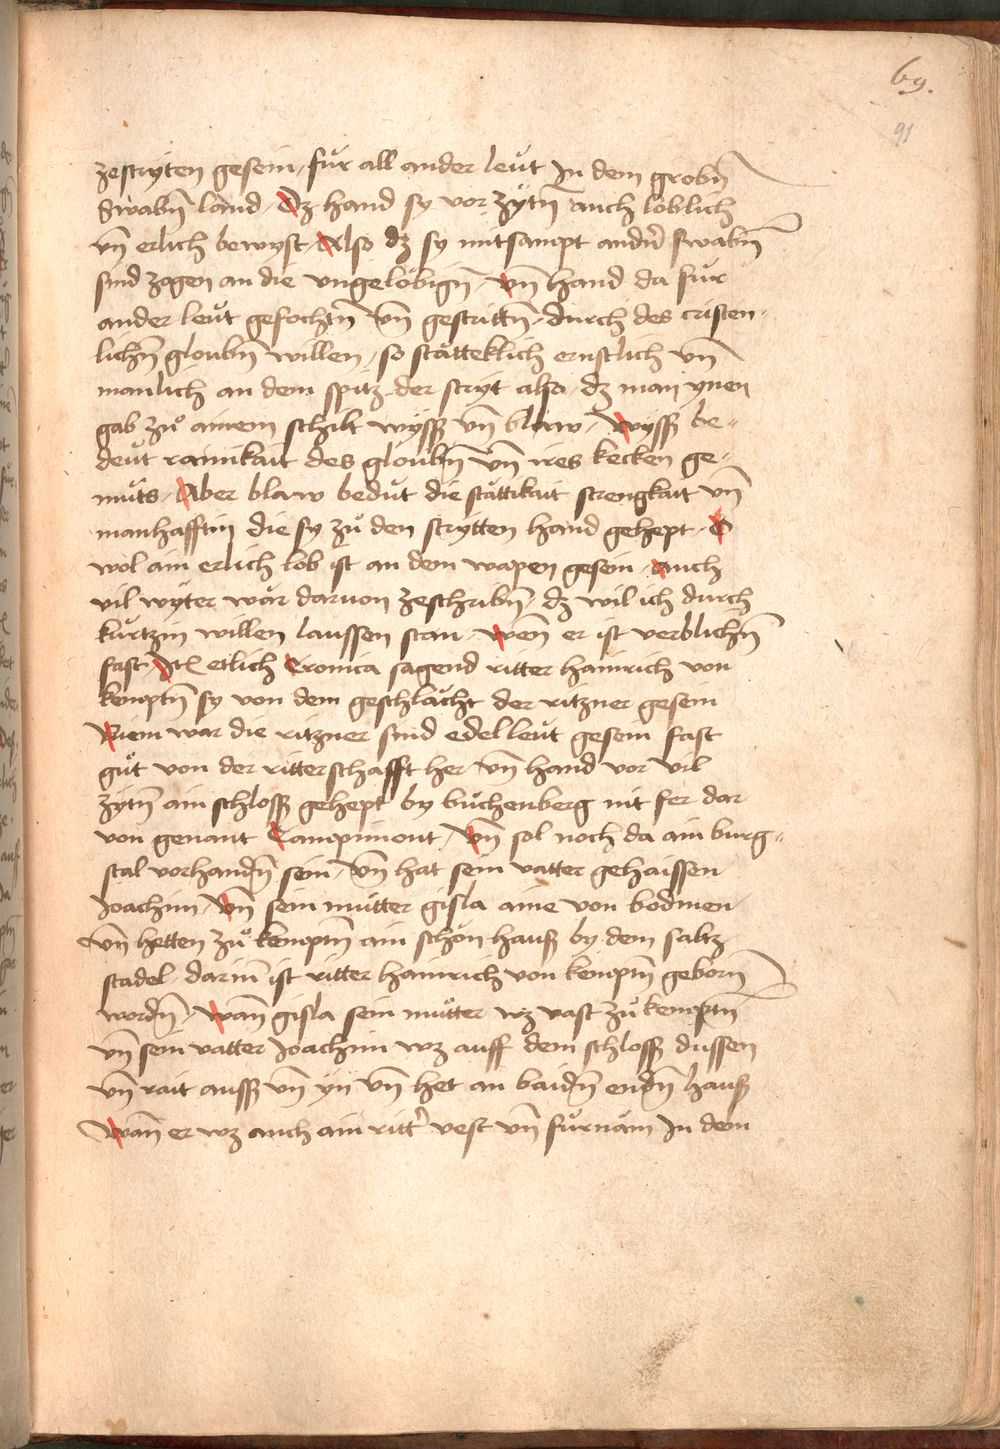 69.
91
zestryten gesein / für all ander leut Jn dem grobn̄
Swabn̄ land / Dz hand sy vor zÿtn̄ auch loblich
vn̄ erlich bewyst / Also dz sy mitsampt andn̄ swabn̄
sind zogen an die vngelöbign̄ / vn̄ hand da für
ander leut gefochtn̄ vn̄ gestrittn̄ / durch des cristen-
lichn̄ gloubn̄ willen / so stätteklich ernstlich vn̄
manlich an dem spitz der stryt also / dz man ynen
gab zů ainem schilt wyss vn̄ blaw / Wyss be-
deut rainikait des gloubn̄ vn̄ ires kecken ge-
müts / Aber blaw bedut die stättikait strengkait vn̄
manhafftin die sy zů den strytten hand gehept / D
wol ain erlich lob ist an dem wapen gesein / auch
vil wyter wär daruon zeschribn̄ / dz wil ich durch
kurtzin willen laussen stan / Wen̄ er ist verblichn̄
fast / Jtē etlich Cronica sagend ritter hainrich von
kemptn̄ sy von dem geschlächt der ritzner gesein
Niem war die ritzner sind edel leut gesein fast
gůt von der ritterschafft her vn̄ hand vor vil
zÿtn̄ ain schloss gehept by bůchenberg nit fer dar
von genant Campiment / Vn̄ sol noch da ain burg-
stal vorhandn̄ sein / vn̄ hat sein vatter gehaissen
Joachim / Vn̄ sein můtter gisla aine von bodmen
vn̄ hetten zů kemptn̄ ain schön hauß by dem saltz
stadel / darin̄ ist ritter hainrich von kemptn̄ geborn̄
wordn̄ / wan̄ gisla sein můtter wz vast zů kemptn̄
vn̄ sein vatter Joachim wz auff dem schloss dussen
vn̄ rait auss vn̄ yn vn̄ het an baidn̄ endn̄ hauß
Wan̄ er wz auch ain ritt͛ vest vn̄ fürnäm Jn dem